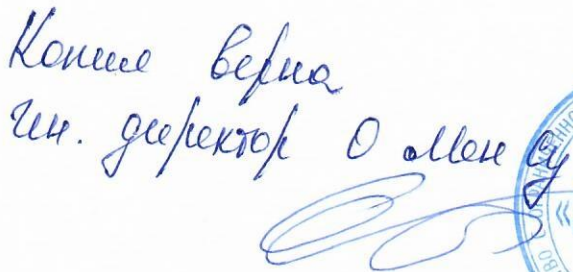 Копия верна
Ген. директор О Мен Су